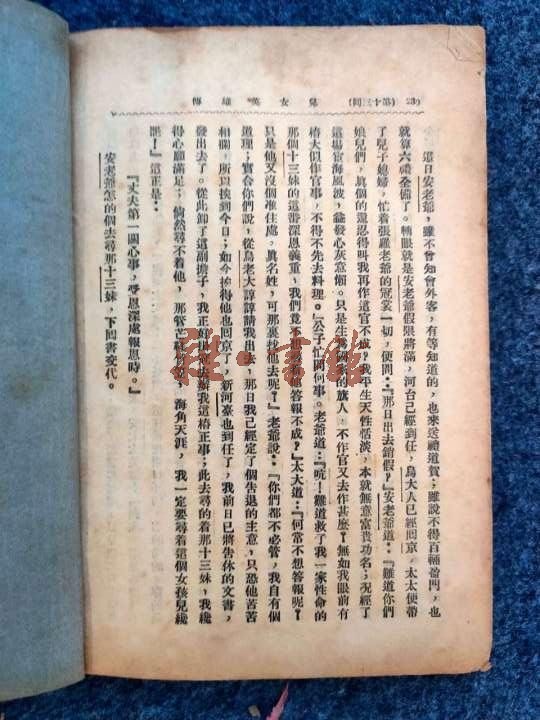 兒女英雄傳 (第十三回) (23
這日安老爺，雖不曾知會外客，有等知道的，也來送禮道賀；雖說不得百輛盈門，也
就算六禮全備了。轉眼就是安老爺假限將滿，河台己經到任，烏大人已經回京，太太便帶
了兒子媳婦，忙着張羅老爺的冠裳一切，便問：『那日出去銷假？』安老爺道：『難道你們
娘兒們，眞個的還忍得叫我再作這官不成？我平生天性恬淡，本就無意富貴功名；况經了
這場宦海風波，益發心灰意懶。只是生爲國家的旗人，不作官又去作甚麽？無如我眼前有
樁大似作官事，不得不先去料理。』公子忙問何事。老爺道：『吭！難道救了我一家性命的
那個十三妹的這番深恩義重，我們竟不想尋着他答報不成？』太太道：『何常不想答報呢？
只是他又沒個准住處，眞名姓，可那裏找他去呢？』老爺說：『你們都不必管，我自有個
道理；實合你們說，從烏老大諄諄請我出去，那日我己經定了個告退的主意，只恐他苦苦
相攔，所以挨到今日；如今挨得他也回京了，新河臺也到任了，我前日已將告休的文書，
發出去了。從此卸了這副擔子，我正好出去辦我這樁正事；此去尋的着那十三妹，我纔
得心願滿足；倘然尋不着他，那管，海角天涯，我一定要尋着這個女孩兒纔
罷！』這正是：
『丈夫第一關心事，受恩深處報恩時。』
安老爺怎的個去尋那十三妹，下回書交代。